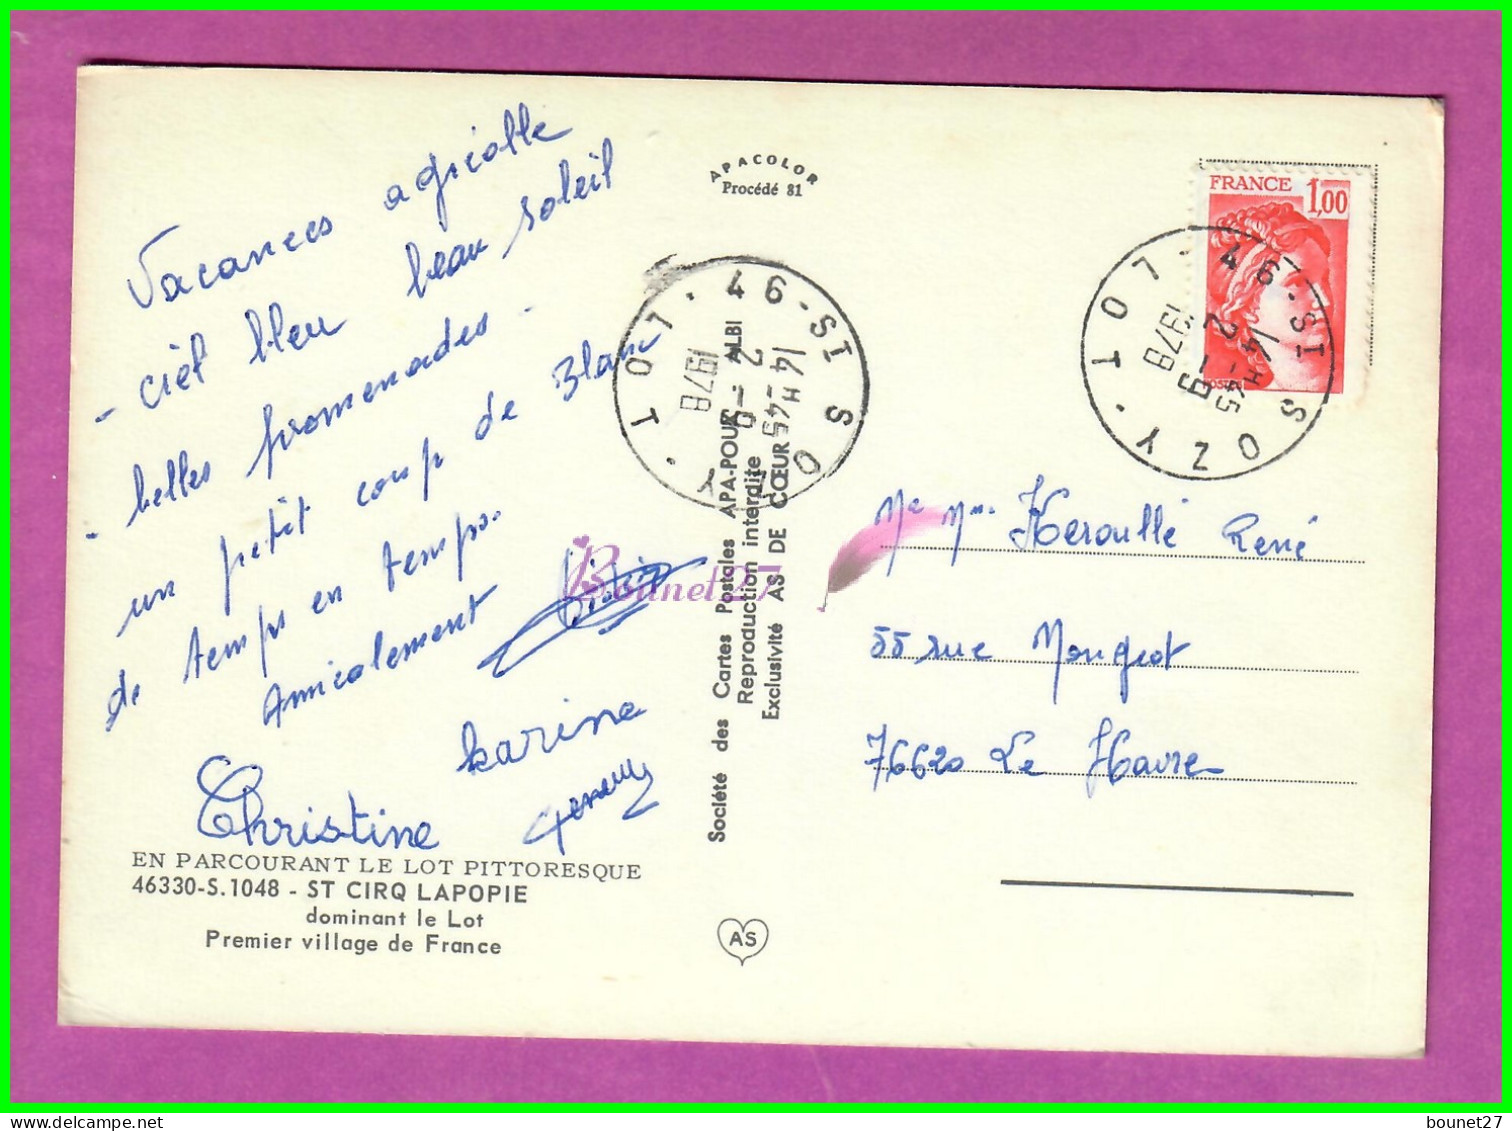 Vacances agréable
- ciel bleu beau soleil
- belles promenades -
un petit coup de Blanc
de temps en temps.
Amicalement
karine
Christine
EN PARCOURANT LE LOT PITTORESQUE
46330-S.1048 - ST CIRQ LAPOPIE
dominant le Lot
Premier village de France
APACOLOR
Procédé 81
46-ST SOZY · LOT ·
14H45
2-9
1978
Société des Cartes Postales APA-POUX ALBI
Reproduction interdite
Exclusivité AS DE CŒUR
Bounet 27
AS
FRANCE 1,00
46-ST SOZY · LOT ·
14H45
2-9
1978
Me Mm. Heroullé René
55 rue Mongeot
76620 Le Havre
bounet27